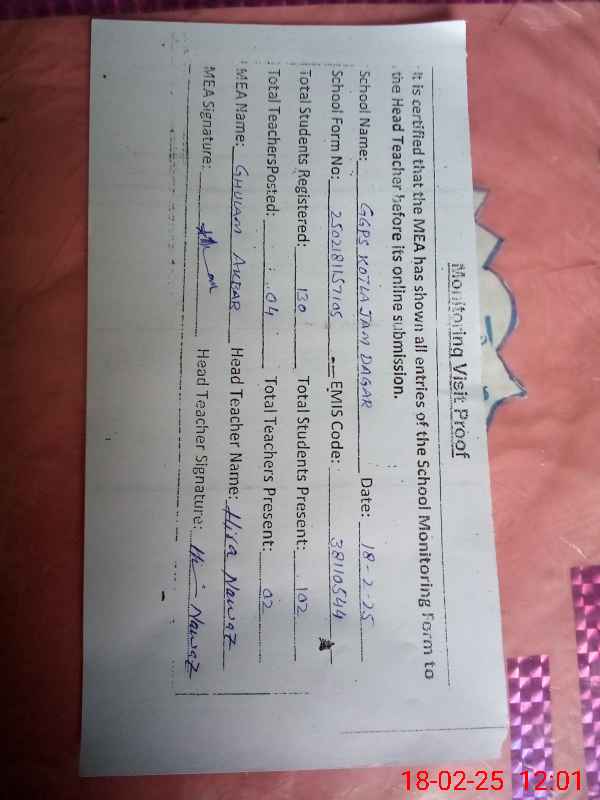 Monitoring Visit Proof
It is certified that the MEA has shown all entries of the School Monitoring Form to
the Head Teacher before its online submission.
School Name: GGPS KOTLA JAM DAGAR Date: 18-2-25
School Form No: 2502181157105 EMIS Code: 38110544
Total Students Registered: 130 Total Students Present: 102
Total TeachersPosted: 04 Total Teachers Present: 02
MEA Name: GHULAM AKBAR Head Teacher Name: Hira Nawaz
MEA Signature: Head Teacher Signature: Nawaz
18-02-25 12:01